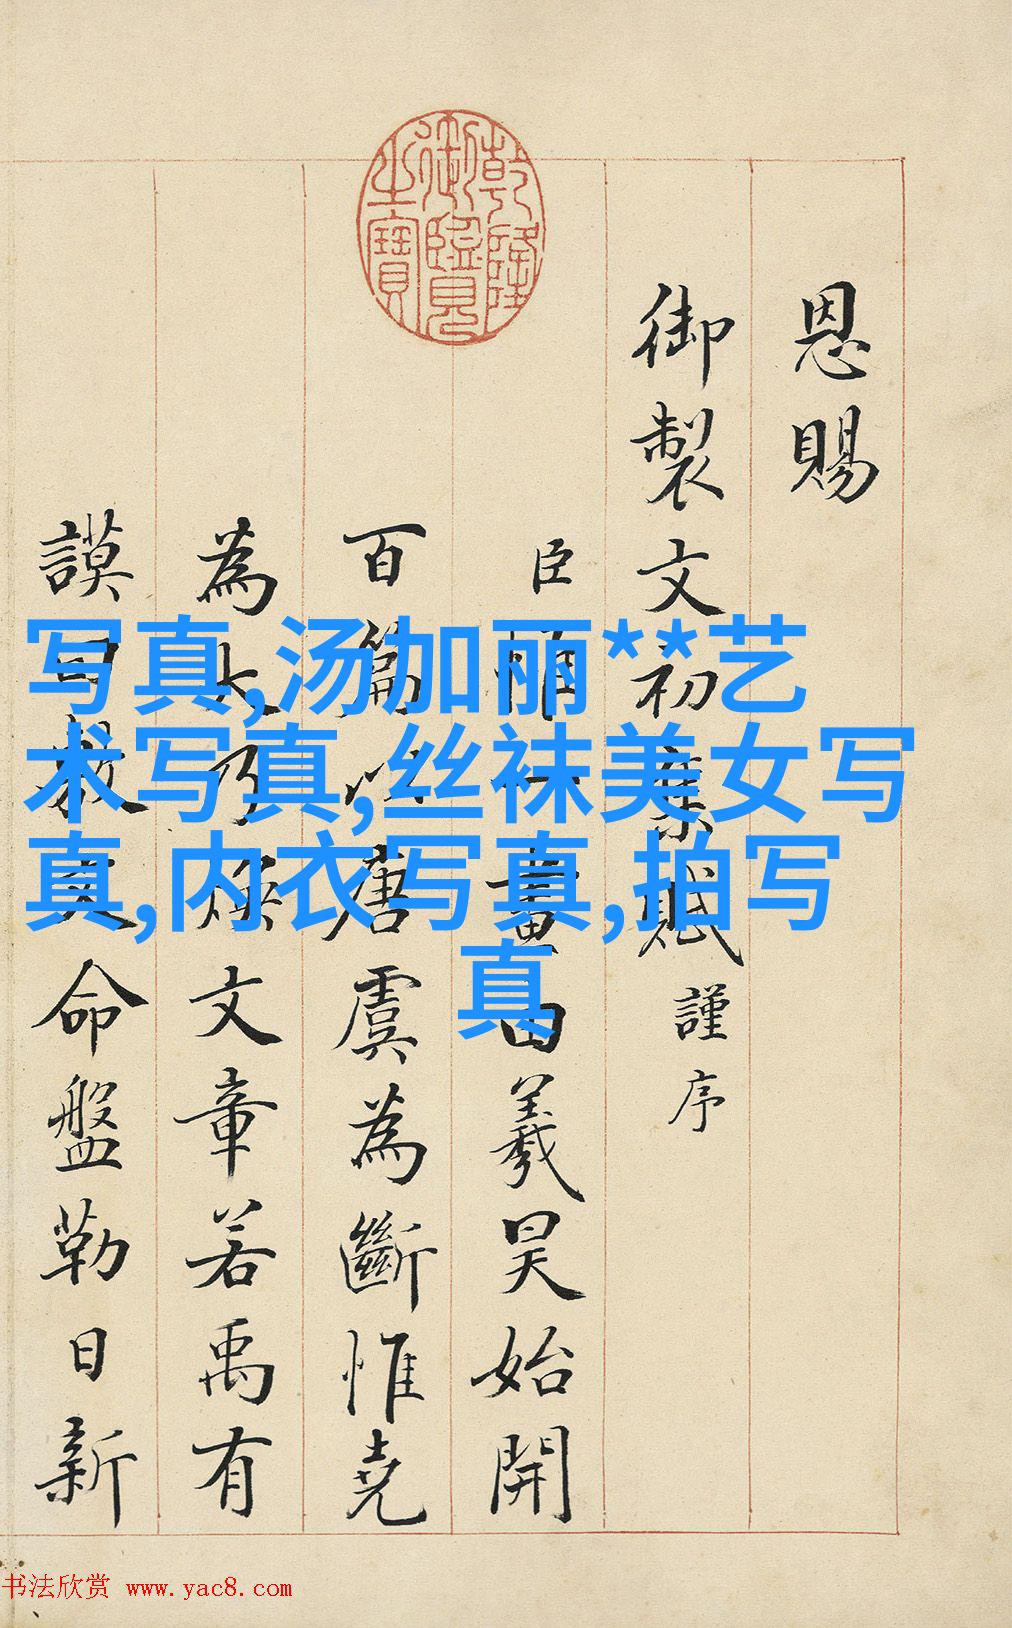 乾隆御覽之寶
恩賜
御製文初集賦謹序
臣惟一畫由羲昊始開
百篇以唐虞為斷惟堯
為大乃煥文章若禹有
謨曰敷文命盤勒日新
写真,汤加丽**艺
术写真,丝袜美女写
真,内衣写真,拍写
真
书法欣赏 www.yac8.com